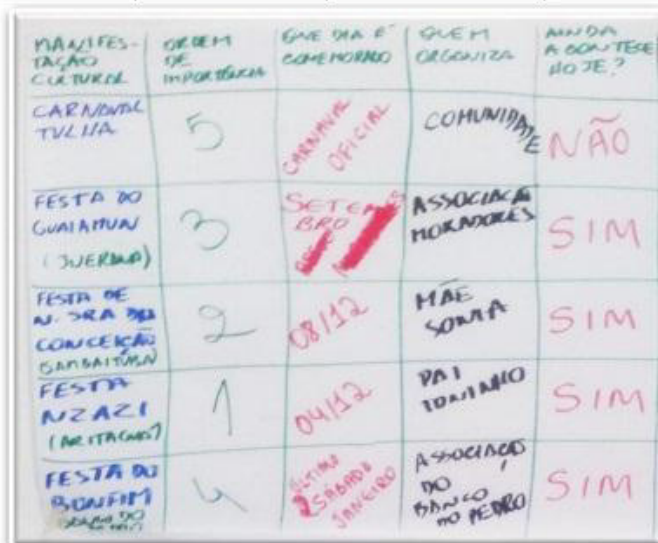 MANIFES- TAÇÃO CULTURAL
ORDEM DE IMPORTÂNCIA
QUE DIA É COMEMORADO
QUEM ORGANIZA
AINDA ACONTECE HOJE?
CARNAVAL
5
CARNAVAL OFICIAL
COMUNIDADE
NÃO
FESTA DO GUAIAMUN
3
SETEMBRO
ASSOCIAÇÃO MORADORES
SIM
FESTA DE N. SRA DA CONCEIÇÃO
2
08/12
MÃE SONIA
SIM
FESTA NZAZI
1
04/12
PAI TONINHO
SIM
FESTA DO BONFIM
4
ÚLTIMO SÁBADO JANEIRO
ASSOCIAÇÃO DO BANCO DO PEDRO
SIM